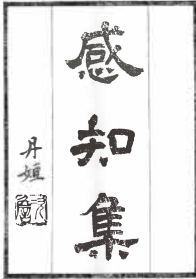 感知集
丹姮